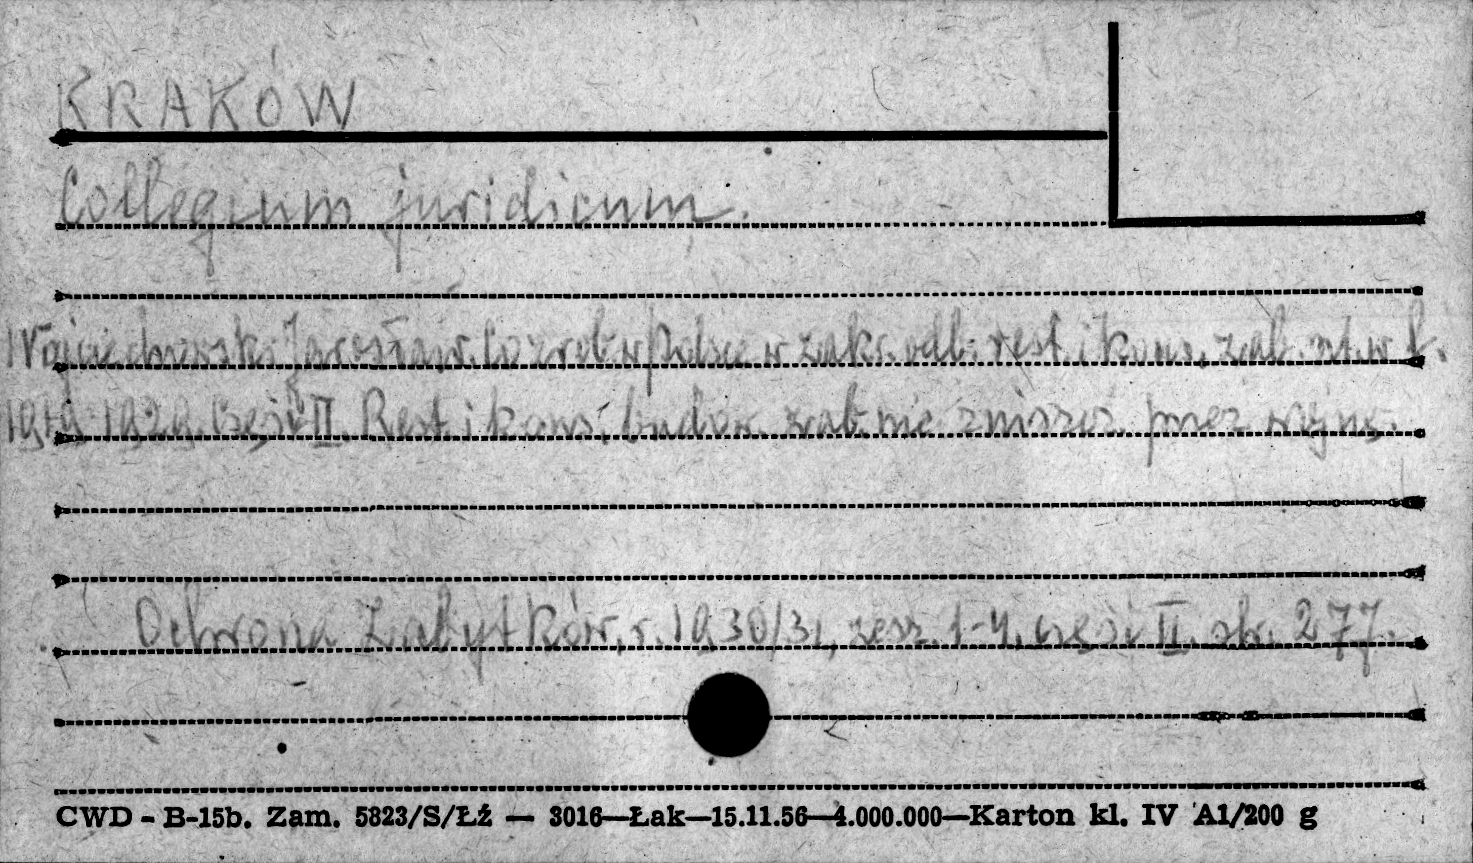 KRAKÓW
Collegium juridicum.
Wojciechowski Jarosław. Co zrob. w Polsce w zakr. odb. rest. i kons. zab. nt. w l.
1919-1929. Część II. Rest. i kons. budow. zab. nie zniszcz. przez wojnę.
Ochrona Zabytków, r. 1930/31, zesz. 1-4, część II. str. 277.
CWD - B-15b. Zam. 5823/S/Łź — 3016—Łak—15.11.56—4.000.000—Karton kl. IV A1/200 g